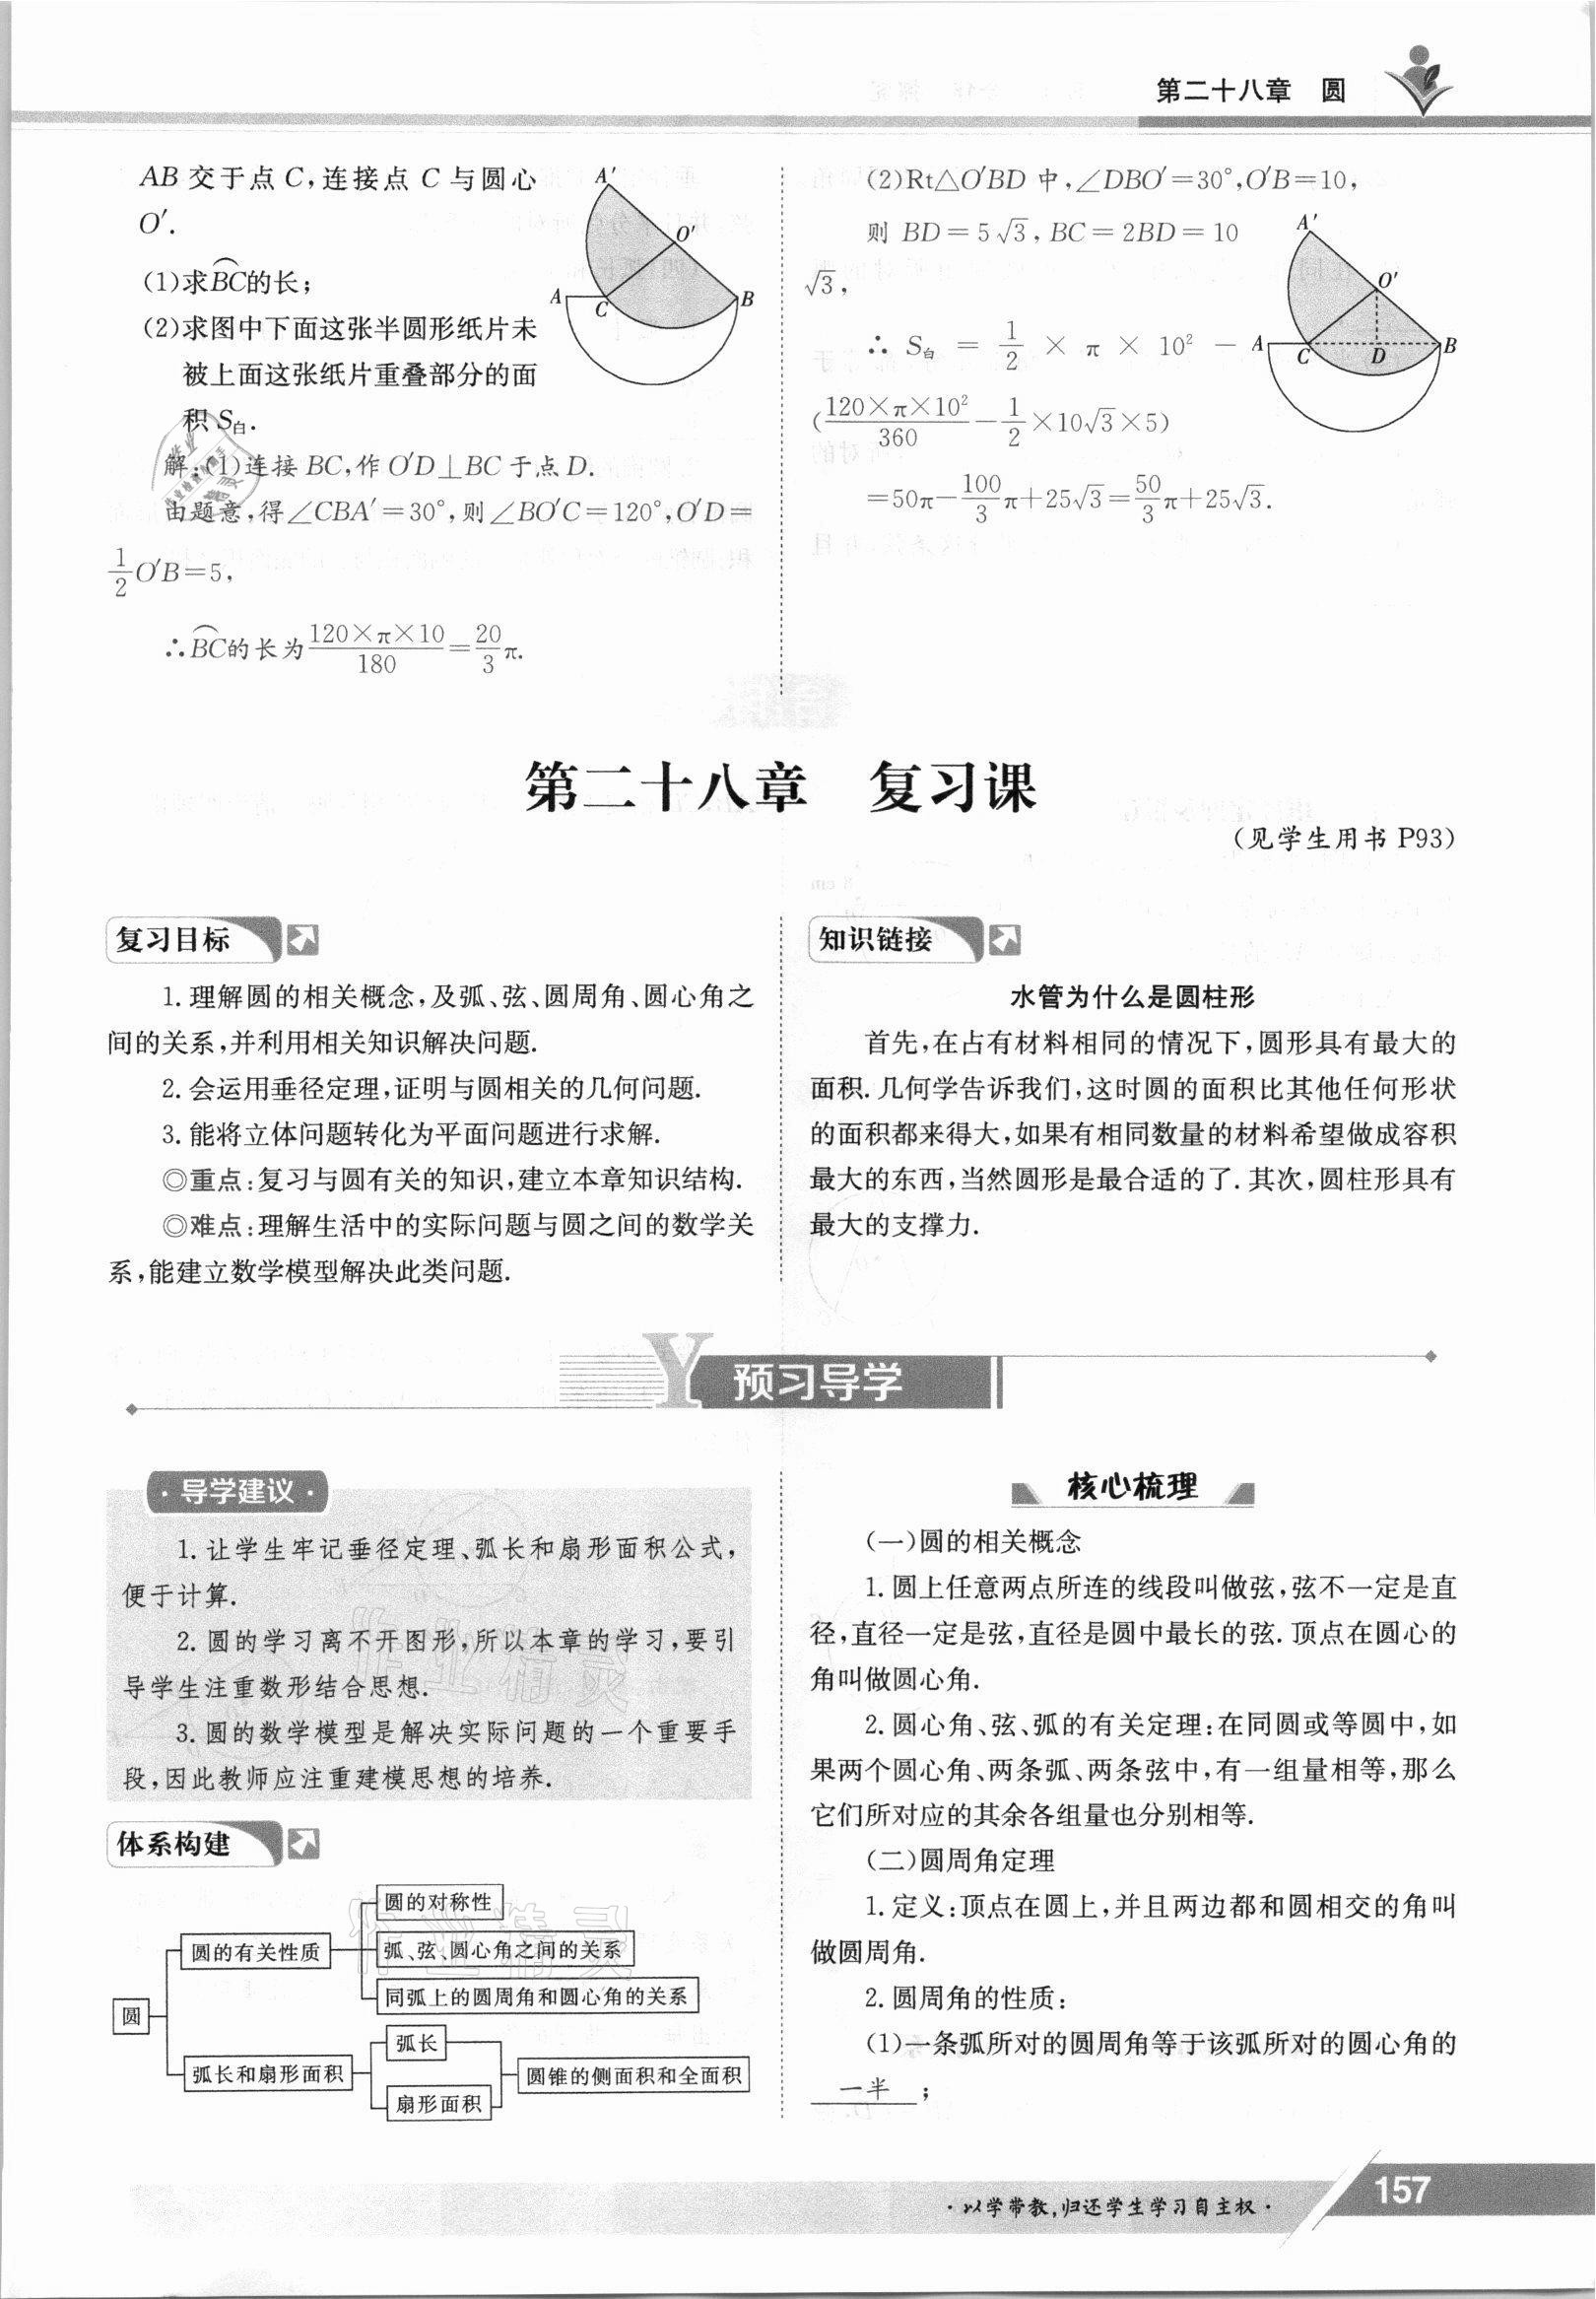 第二十八章 圆
AB 交于点 C,连接点 C 与圆心
O′.
(1)求BC的长;
(2)求图中下面这张半圆形纸片未
被上面这张纸片重叠部分的面
积 S白.
A′
O′
A
C
B
解:(1)连接 BC,作 O′D⊥BC 于点 D.
由题意,得∠CBA′=30°,则∠BO′C=120°,O′D=
1/2 O′B=5,
∴BC的长为 120×π×10/180 = 20/3 π.
(2)Rt△O′BD 中,∠DBO′=30°,O′B=10,
则 BD=5√3,BC=2BD=10
√3,
∴ S白 = 1/2 × π × 10² −
(120×π×10²/360 − 1/2 ×10√3×5)
=50π−100/3 π+25√3=50/3 π+25√3.
A′
O′
A
C
D
B
第二十八章 复习课
(见学生用书 P93)
复习目标
1.理解圆的相关概念,及弧、弦、圆周角、圆心角之
间的关系,并利用相关知识解决问题.
2.会运用垂径定理,证明与圆相关的几何问题.
3.能将立体问题转化为平面问题进行求解.
◎重点:复习与圆有关的知识,建立本章知识结构.
◎难点:理解生活中的实际问题与圆之间的数学关
系,能建立数学模型解决此类问题.
知识链接
水管为什么是圆柱形
首先,在占有材料相同的情况下,圆形具有最大的
面积.几何学告诉我们,这时圆的面积比其他任何形状
的面积都来得大,如果有相同数量的材料希望做成容积
最大的东西,当然圆形是最合适的了.其次,圆柱形具有
最大的支撑力.
Y 预习导学
·导学建议·
1.让学生牢记垂径定理、弧长和扇形面积公式,
便于计算.
2.圆的学习离不开图形,所以本章的学习,要引
导学生注重数形结合思想.
3.圆的数学模型是解决实际问题的一个重要手
段,因此教师应注重建模思想的培养.
体系构建
圆
圆的有关性质
圆的对称性
弧、弦、圆心角之间的关系
同弧上的圆周角和圆心角的关系
弧长和扇形面积
弧长
扇形面积
圆锥的侧面积和全面积
作业精灵
作业精灵
核心梳理
(一)圆的相关概念
1.圆上任意两点所连的线段叫做弦,弦不一定是直
径,直径一定是弦,直径是圆中最长的弦.顶点在圆心的
角叫做圆心角.
2.圆心角、弦、弧的有关定理:在同圆或等圆中,如
果两个圆心角、两条弧、两条弦中,有一组量相等,那么
它们所对应的其余各组量也分别相等.
(二)圆周角定理
1.定义:顶点在圆上,并且两边都和圆相交的角叫
做圆周角.
2.圆周角的性质:
(1)一条弧所对的圆周角等于该弧所对的圆心角的
一半;
·以学带教,归还学生学习自主权·
157